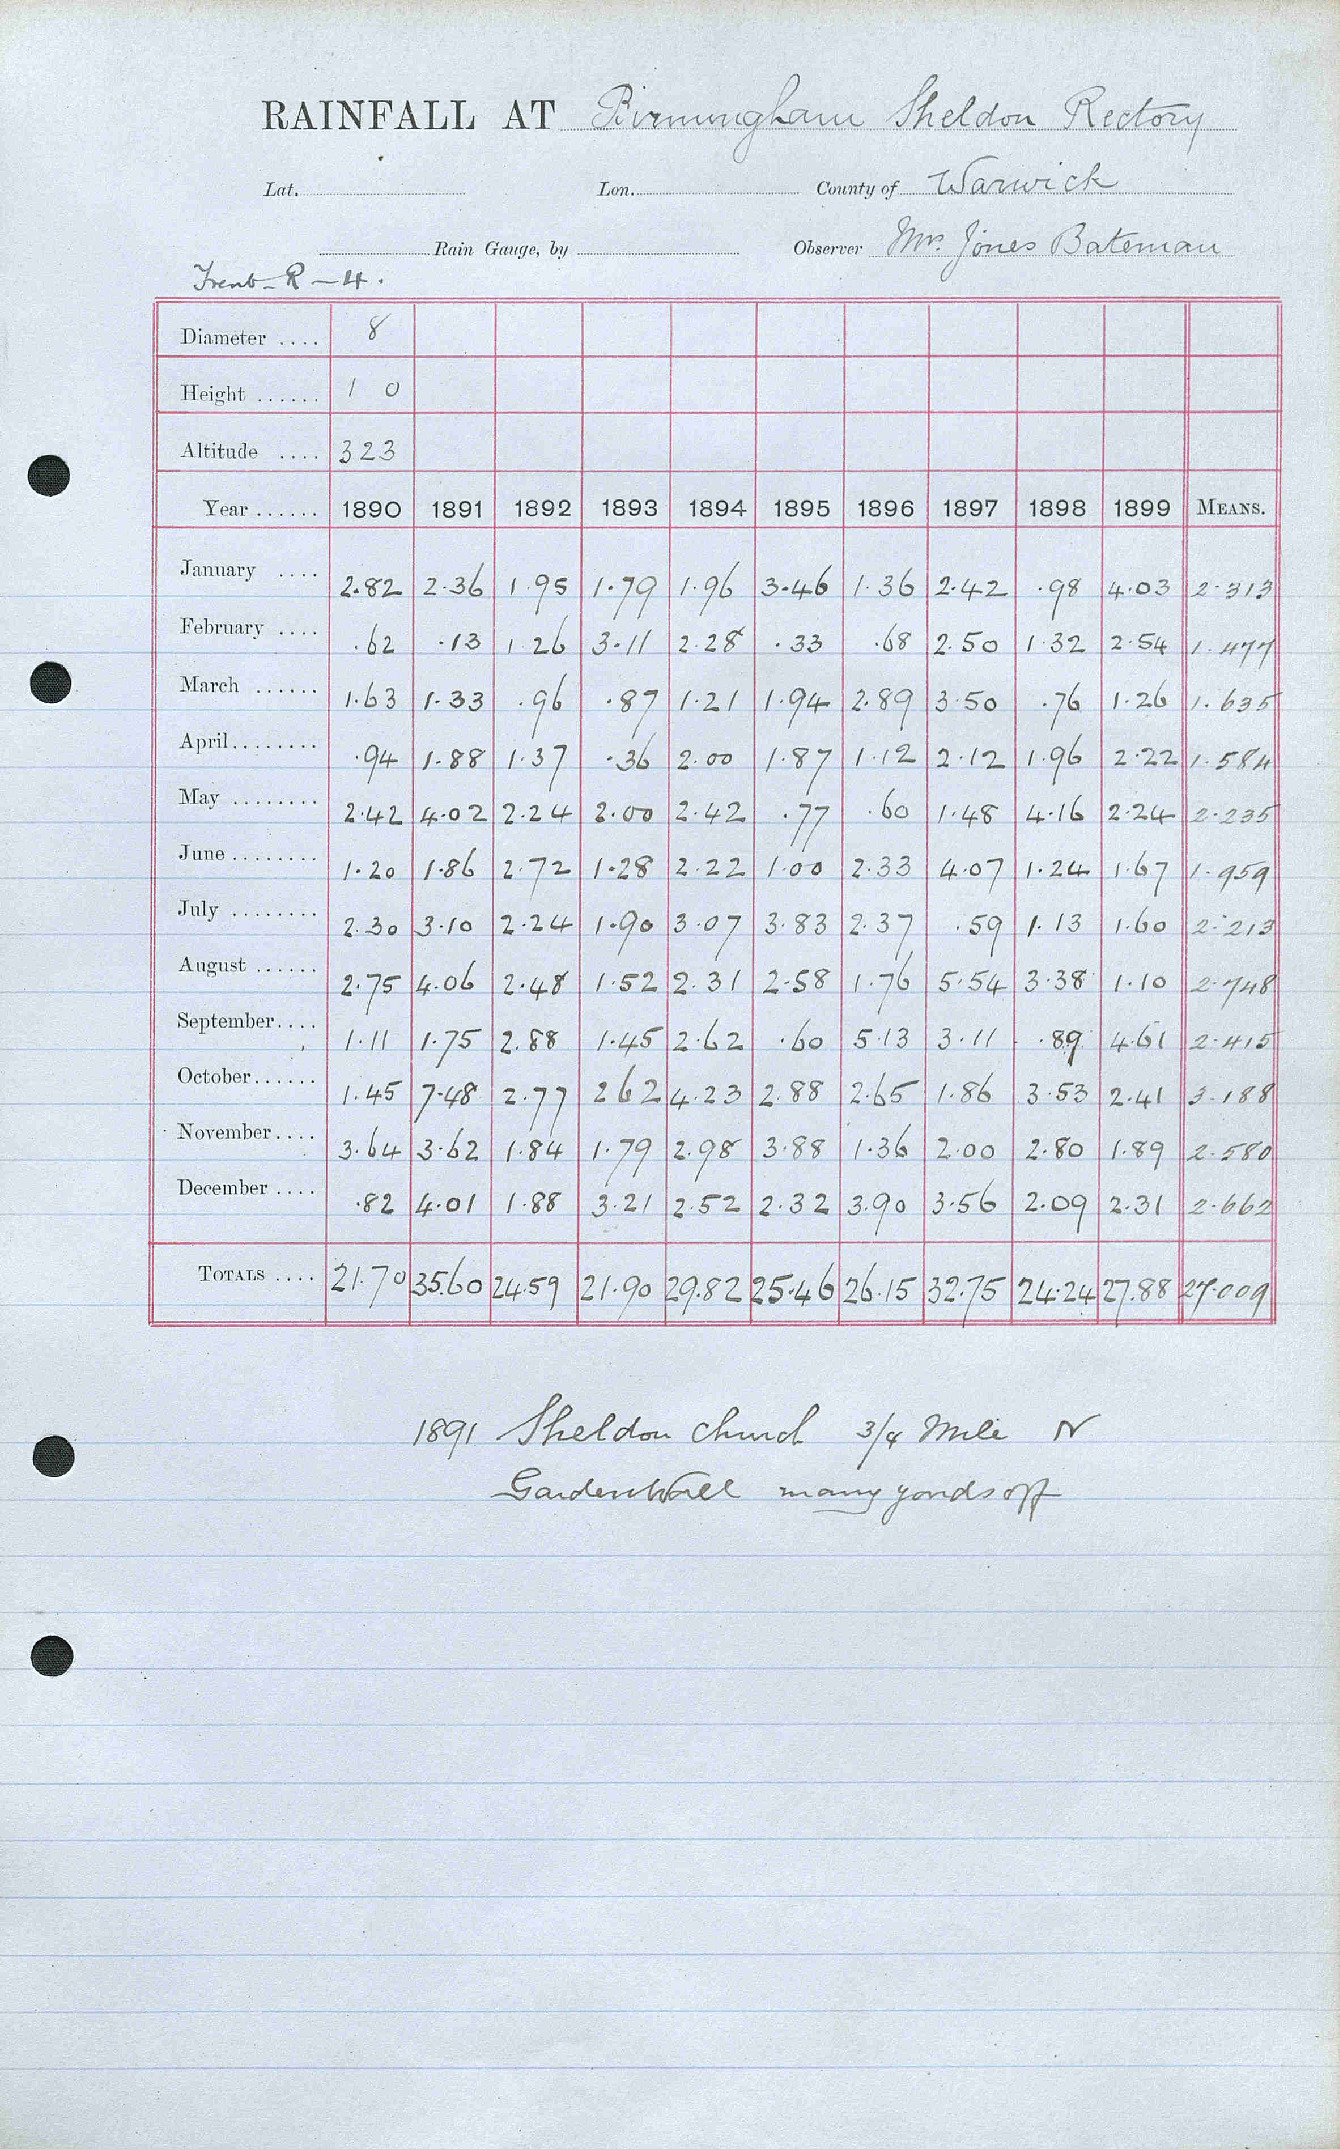 RAINFALL AT Birmingham Sheldon Rectory
Lat. Lon. County of Warwick
Rain Gauge, by Observer Mrs. Jones Bateman
Trent-R-4.
Diameter .... 8
Height ...... 1 0
Altitude .... 323
Year ...... 1890 1891 1892 1893 1894 1895 1896 1897 1898 1899 MEANS.
January .... 2.82 2.36 1.95 1.79 1.96 3.46 1.36 2.42 .98 4.03 2.313
February .... .62 .13 1.26 3.11 2.28 .33 .68 2.50 1.32 2.54 1.477
March ...... 1.63 1.33 .96 .87 1.21 1.94 2.89 3.50 .76 1.26 1.635
April........ .94 1.88 1.37 .36 2.00 1.87 1.12 2.12 1.96 2.22 1.584
May ........ 2.42 4.02 2.24 2.00 2.42 .77 .60 1.48 4.16 2.24 2.235
June ........ 1.20 1.86 2.72 1.28 2.22 1.00 2.33 4.07 1.24 1.67 1.959
July ........ 2.30 3.10 2.24 1.90 3.07 3.83 2.37 .59 1.13 1.60 2.213
August ...... 2.75 4.06 2.48 1.52 2.31 2.58 1.76 5.54 3.38 1.10 2.748
September.... 1.11 1.75 2.88 1.45 2.62 .60 5.13 3.11 .89 4.61 2.415
October...... 1.45 7.48 2.77 2.62 4.23 2.88 2.65 1.86 3.53 2.41 3.188
November.... 3.64 3.62 1.84 1.79 2.98 3.88 1.36 2.00 2.80 1.89 2.580
December .... .82 4.01 1.88 3.21 2.52 2.32 3.90 3.56 2.09 2.31 2.662
TOTALS .... 21.70 35.60 24.59 21.90 29.82 25.46 26.15 32.75 24.24 27.88 27.009
1891 Sheldon Church 3/4 Mile N
Garden Wall many yards off